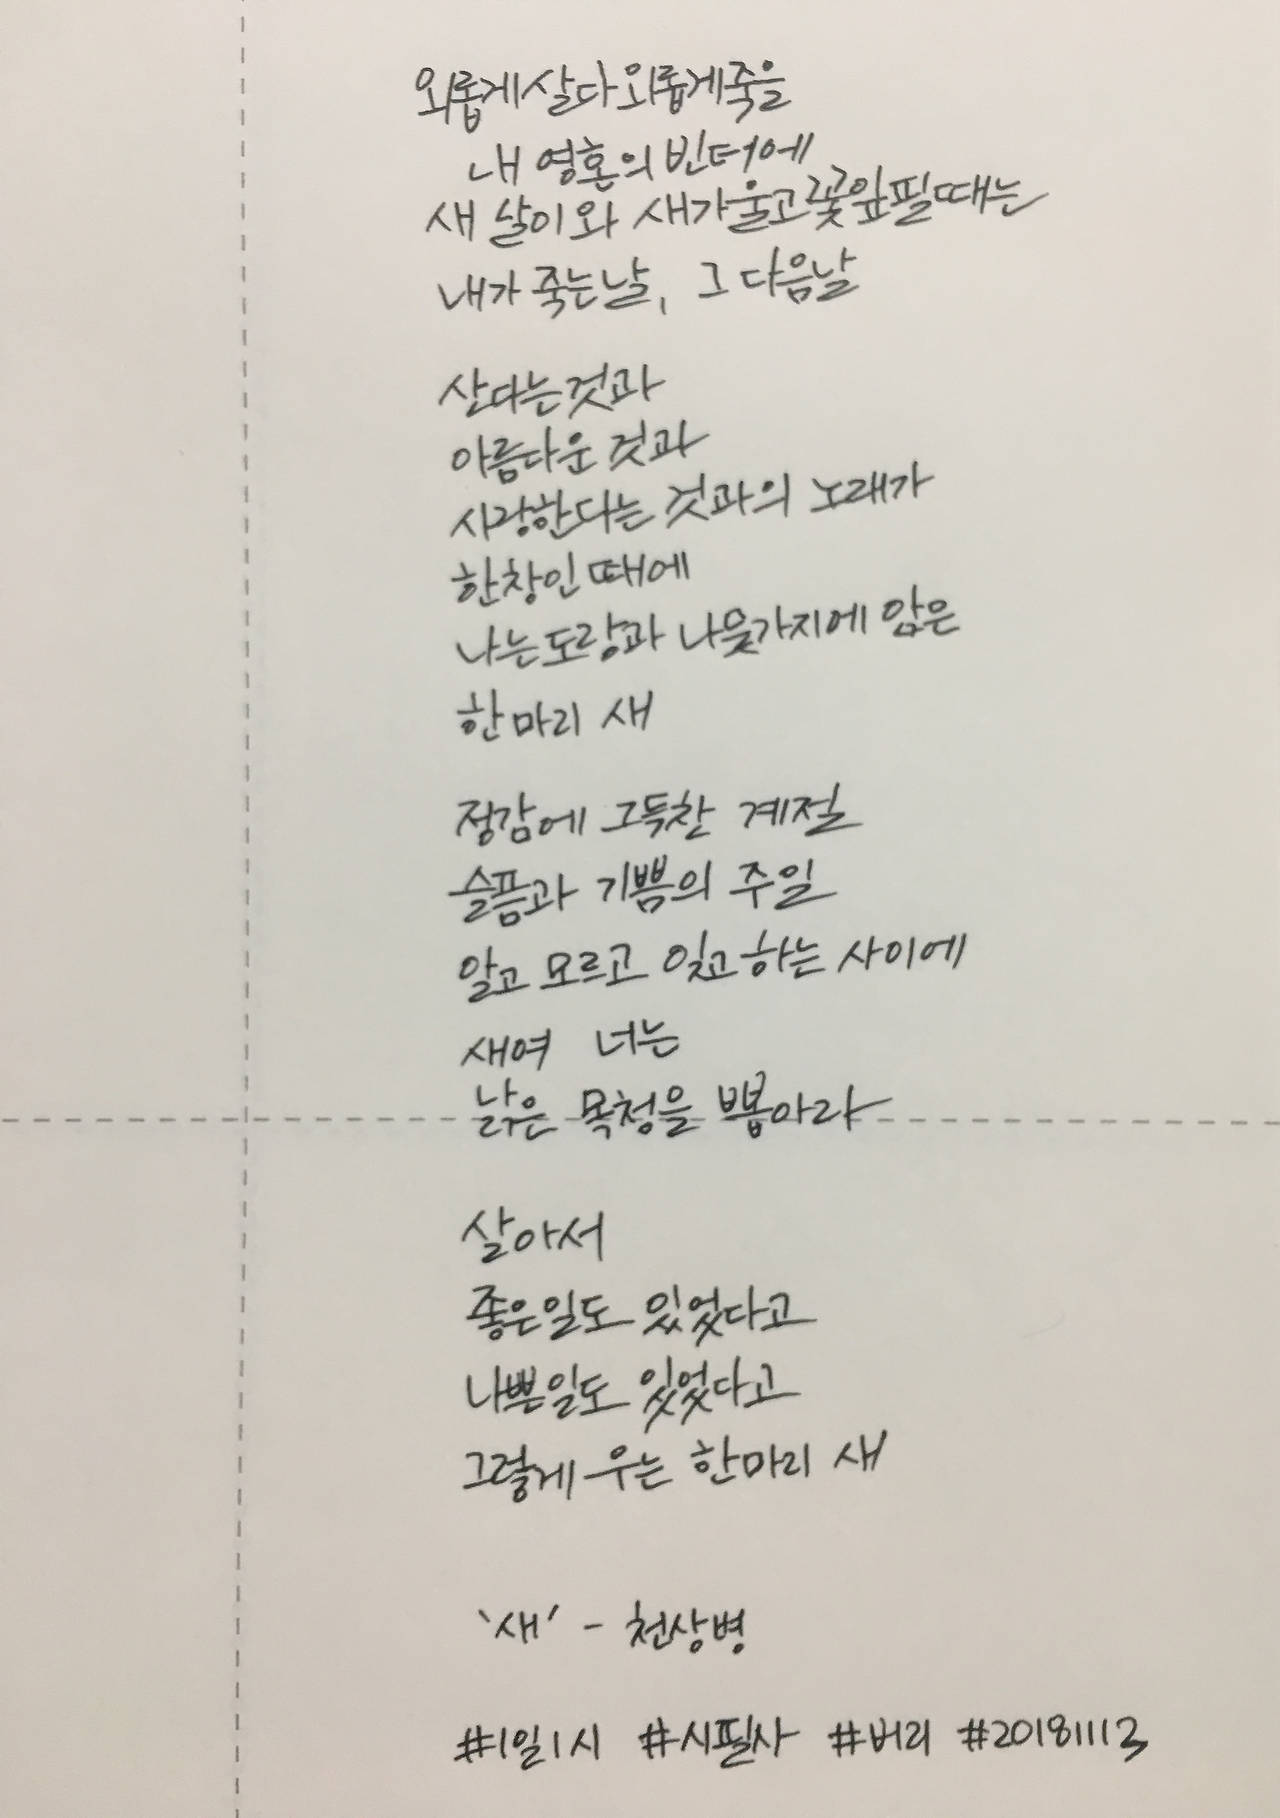 외롭게 살다 외롭게 죽을
내 영혼의 빈터에
새 날이 와 새가 울고 꽃잎 필 때는
내가 죽는 날, 그 다음날
산다는 것과
아름다운 것과
사랑한다는 것과의 노래가
한창인 때에
나는 도랑과 나뭇가지에 앉은
한마리 새
정감에 그득찬 계절
슬픔과 기쁨의 주일
알고 모르고 잊고 하는 사이에
새여 너는
낡은 목청을 뽑아라
살아서
좋은일도 있었다고
나쁜일도 있었다고
그렇게 우는 한마리 새
'새' - 천상병
#1일1시 #시필사 #버리 #20181113